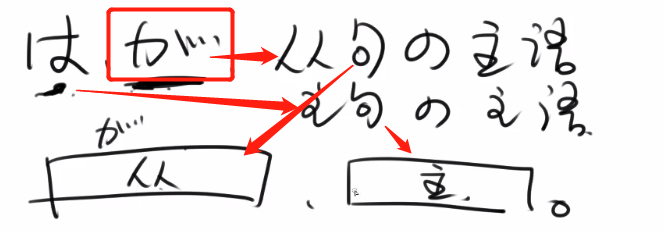 は が… 从句の主语
主句の主语
が…
从 、 主 。